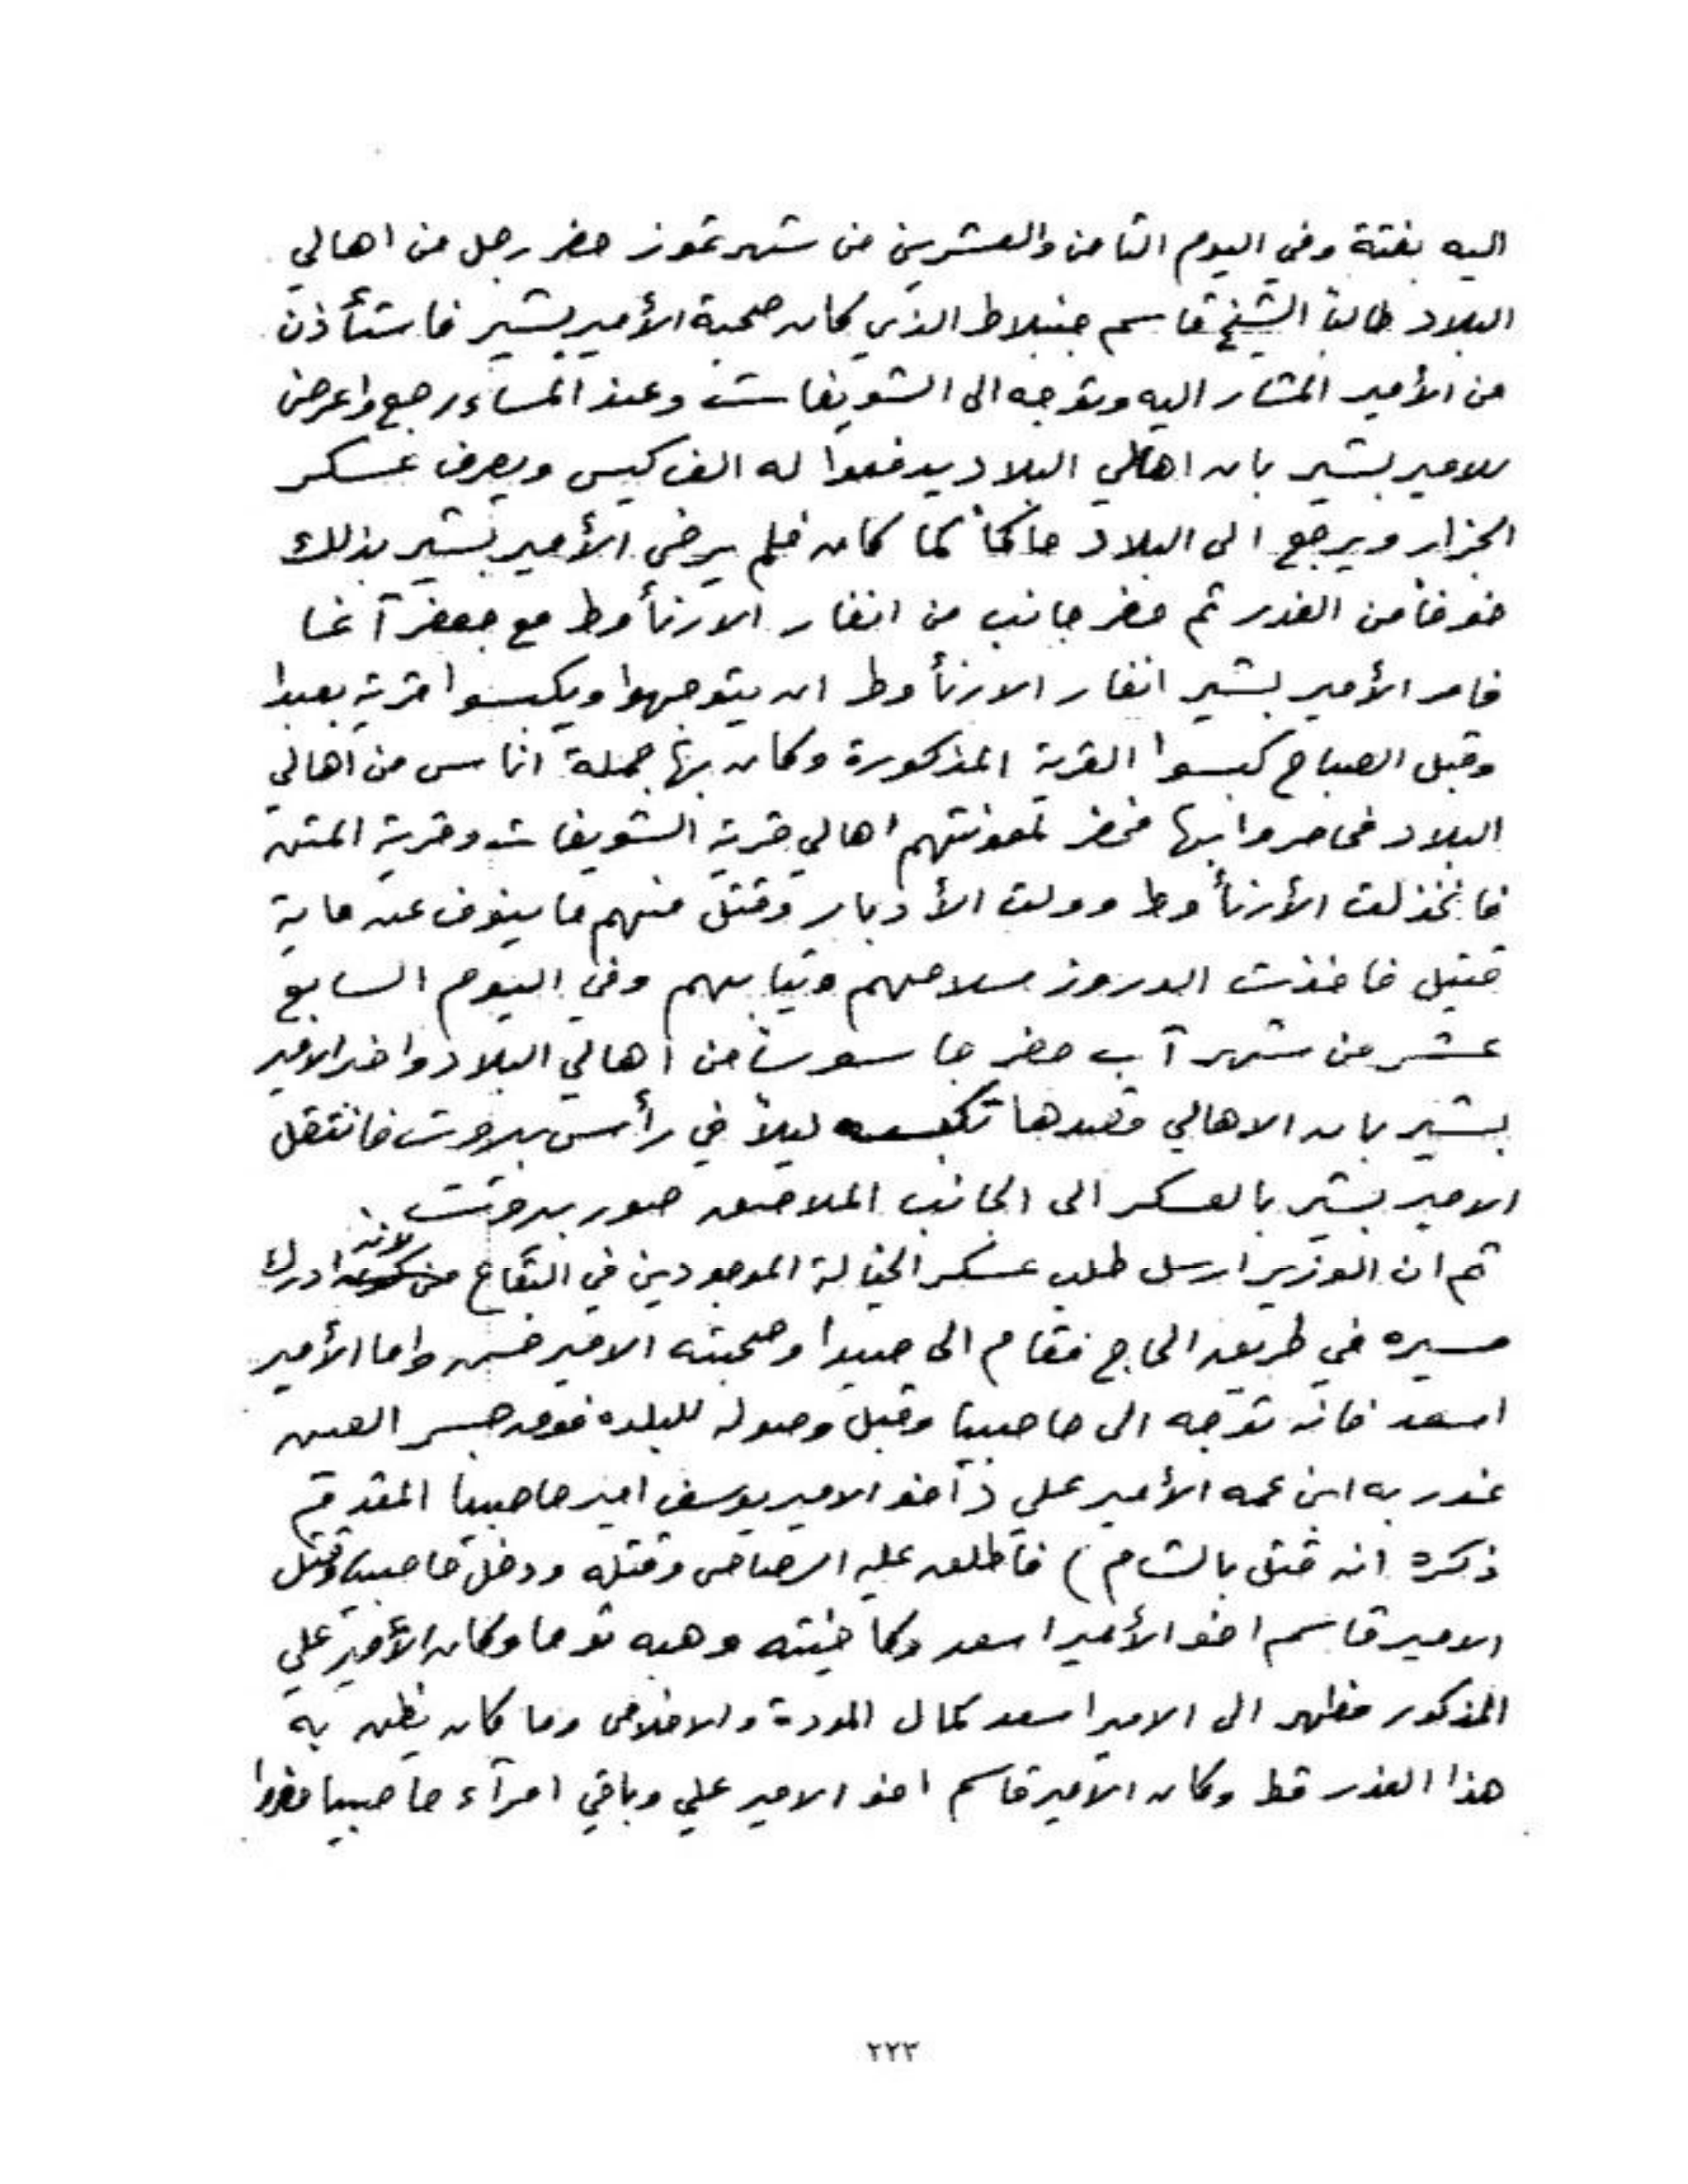 اليه بغتة وفي اليوم الثامن والعشرين من شهر تموز حضر رجل من اهالي
البلاد طالباً الشيخ قاسم جنبلاط الذي كان صحبة الأمير بشير فاستأذن
من الأمير المشار اليه وتوجه الى الشويفات وعند المساء رجع واعرض
للامير بشير بان اهالي البلاد يدفعوا له الف كيس ويصرف عسكر
الجزار ويرجع الى البلاد حاكماً كما كان فلم يرضى الأمير بشير بذلك
خوفاً من الغدر ثم حضر جانب من انفار الارنأوط مع جعفر آغا
فامر الأمير بشير انفار الارنأوط ان يتوجهوا ويكبسوا قرية بعبدا
وقبل الصباح كبسوا القرية المذكورة وكان بها جملة اناس من اهالي
البلاد فحاصروا بها فحضر لمعونتهم اهالي قرية الشويفات وقرية المتن
فانخذلت الأرنأوط وولت الأدبار وقتل منهم ما ينوف عن ماية
قتيل فاخذت الدروز سلاحهم وثيابهم وفي اليوم السابع
عشر من شهر آب حضر جاسوساً من اهالي البلاد واخبر الامير
بشير بان الاهالي قصدها تكبسه ليلاً في رأس بيروت فانتقل
الامير بشير بالعسكر الى الجانب الملاصق صور بيروت
ثم ان الوزير ارسل طلب عسكر الخيالة الموجودين في البقاع لانه ادرك
مسيره في طريق الحاج فقام الى صيدا وصحبته الامير حسن واما الأمير
اسعد فانه توجه الى حاصبيا وقبل وصوله للبلده فوق جسر العين
غدر به ابن عمه الأمير علي (أخو الامير يوسف امير حاصبيا المقدم
ذكره انه قتل بالشام) فأطلق عليه الرصاص وقتله ودخل حاصبيا وقتل
الامير قاسم اخو الأمير اسعد وكاخيته وهبه توما وكان الأمير علي
المذكور مظهر الى الامير اسعد كمال المودة والاخلاص وما كان يظن به
هذا الغدر قط وكان الأمير قاسم اخو الامير علي وباقي امرآء حاصبيا
٢٢٣